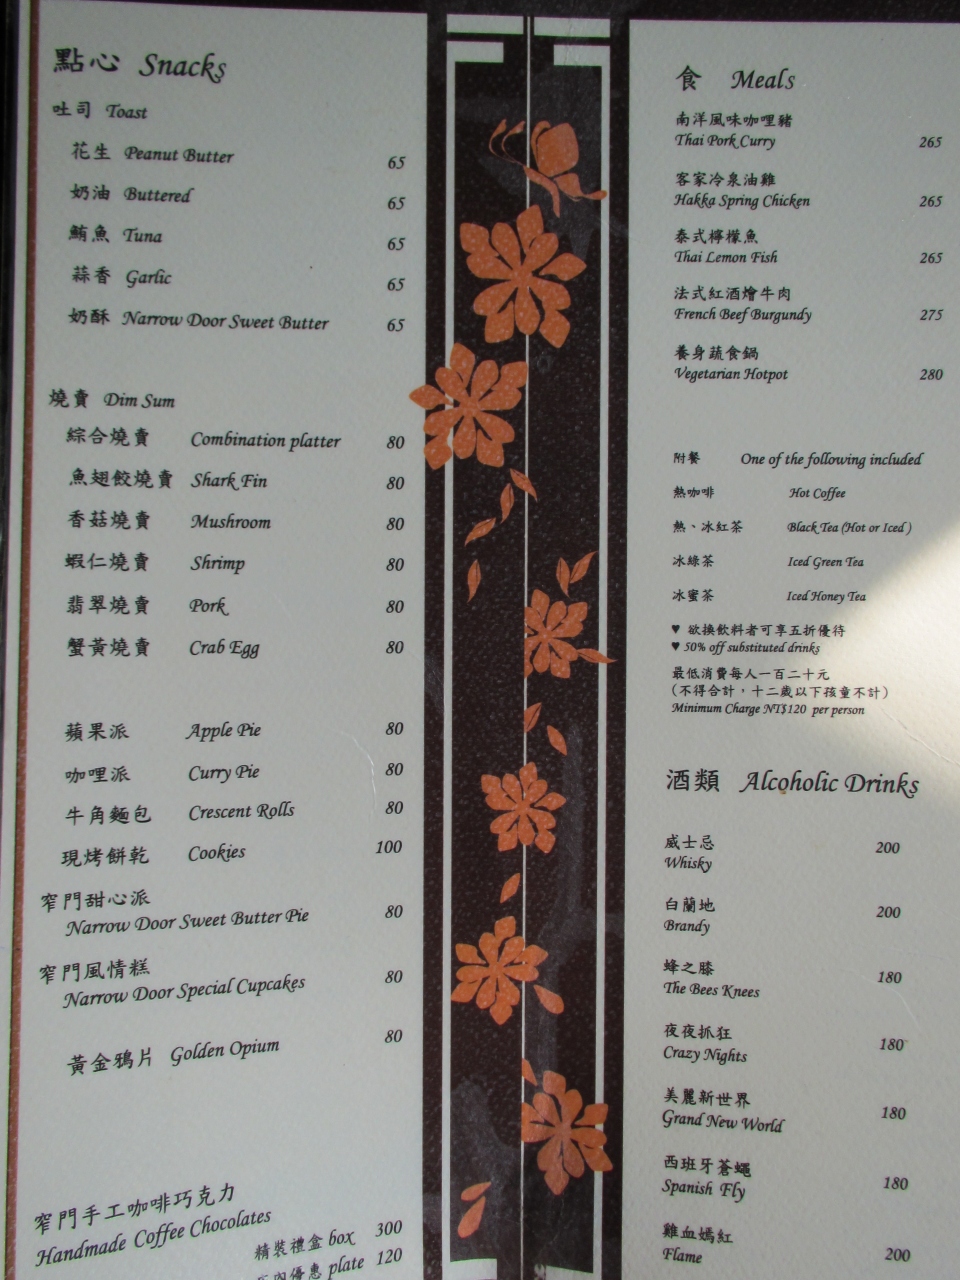 點心 Snacks
吐司 Toast
花生 Peanut Butter 65
奶油 Buttered 65
鮪魚 Tuna 65
蒜香 Garlic 65
奶酥 Narrow Door Sweet Butter 65
燒賣 Dim Sum
綜合燒賣 Combination platter 80
魚翅餃燒賣 Shark Fin 80
香菇燒賣 Mushroom 80
蝦仁燒賣 Shrimp 80
翡翠燒賣 Pork 80
蟹黃燒賣 Crab Egg 80
蘋果派 Apple Pie 80
咖哩派 Curry Pie 80
牛角麵包 Crescent Rolls 80
現烤餅乾 Cookies 100
窄門甜心派
Narrow Door Sweet Butter Pie 80
窄門風情糕
Narrow Door Special Cupcakes 80
黃金鴉片 Golden Opium 80
窄門手工咖啡巧克力
Handmade Coffee Chocolates
精裝禮盒 box 300
優惠 plate 120
食 Meals
南洋風味咖哩豬
Thai Pork Curry 265
客家冷泉油雞
Hakka Spring Chicken 265
泰式檸檬魚
Thai Lemon Fish 265
法式紅酒燴牛肉
French Beef Burgundy 275
養身蔬食鍋
Vegetarian Hotpot 280
附餐 One of the following included
熱咖啡 Hot Coffee
熱、冰紅茶 Black Tea (Hot or Iced )
冰綠茶 Iced Green Tea
冰蜜茶 Iced Honey Tea
♥ 欲換飲料者可享五折優待
♥ 50% off substituted drinks
最低消費每人一百二十元
(不得合計，十二歲以下孩童不計)
Minimum Charge NT$120 per person
酒類 Alcoholic Drinks
威士忌 200
Whisky
白蘭地 200
Brandy
蜂之膝 180
The Bees Knees
夜夜抓狂
Crazy Nights 180
美麗新世界
Grand New World 180
西班牙蒼蠅
Spanish Fly 180
雞血嫣紅
Flame 200